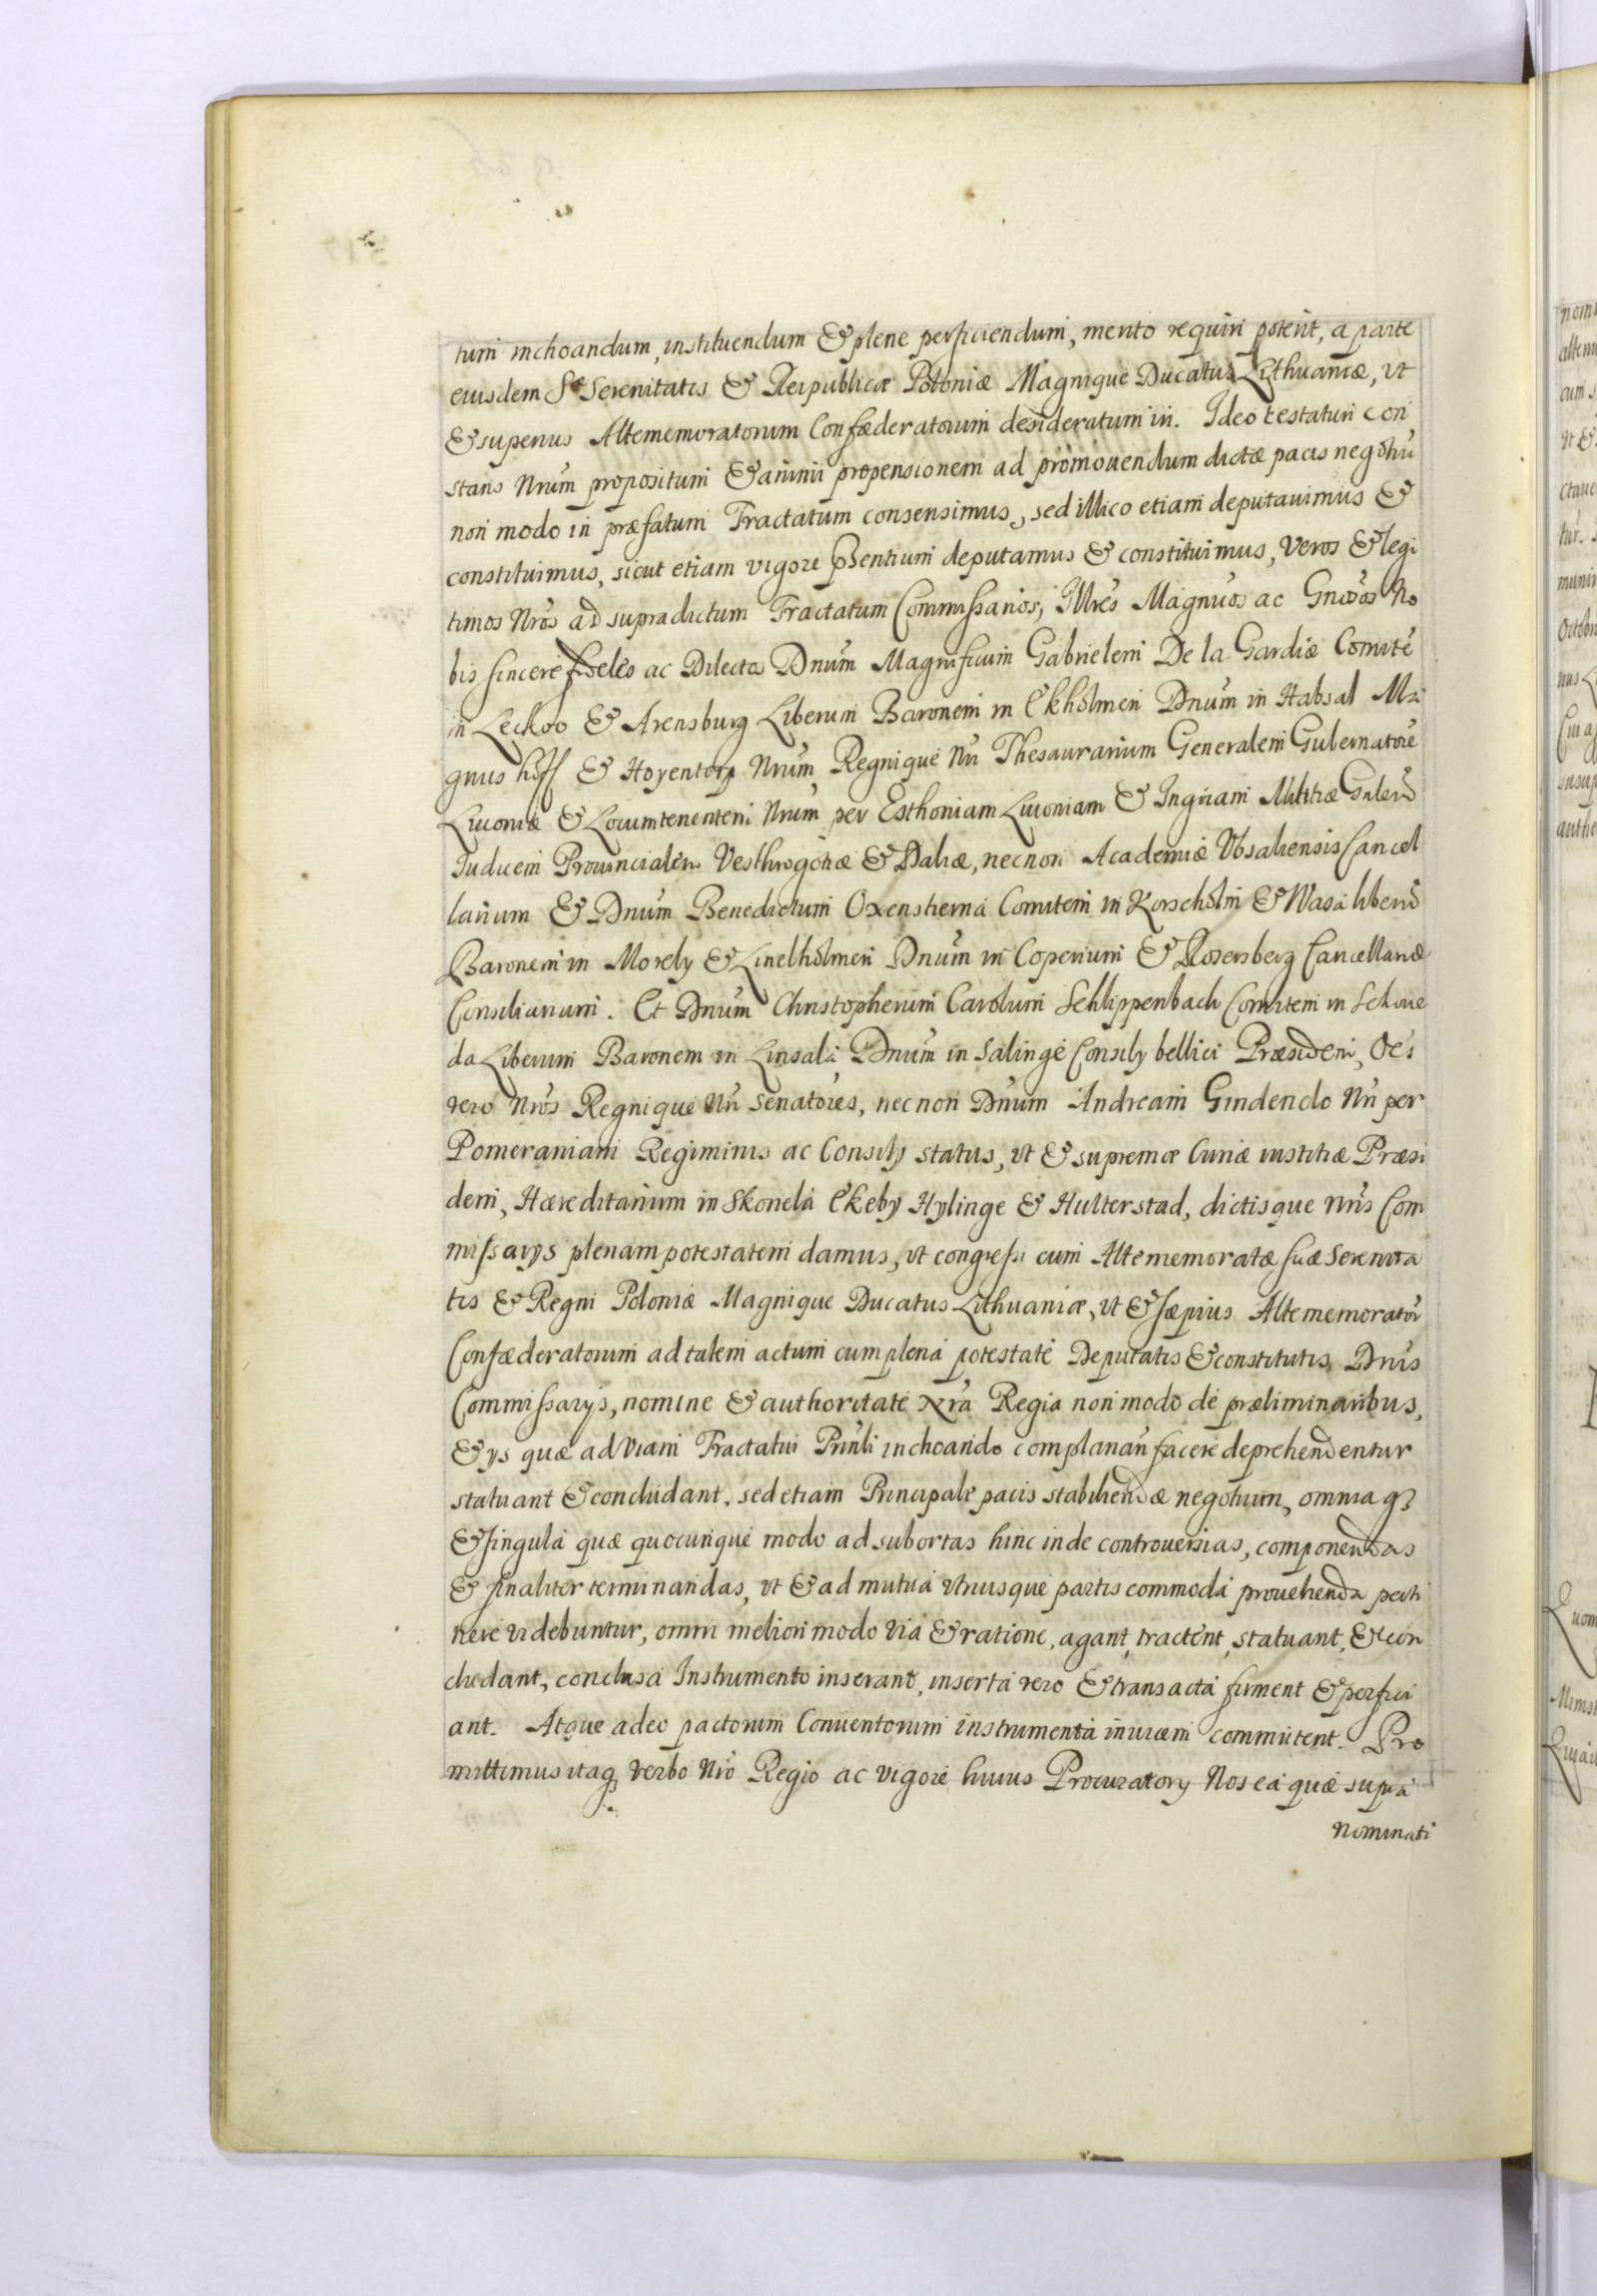 tum inchoandum, instituendum & plene perficiendum, merito requiri poterit, a parte
eiusdem Sæ Serenitatis & Reipublicæ Poloniæ Magnique Ducatus Lithuaniæ, ut
& superius Altememoratorum Confæderatorum desideratum iri. Ideo testatum con
stans Nrũm propositum & animi propensionem ad promouendum dictæ pacis negotiũ
non modo in præfatum Tractatum consensimus, sed illico etiam deputauimus &
constituimus, sicut etiam vigore pñsentium deputamus & constituimus, Veros & legi
timos Nrõs ad supradictum Tractatum Commissarios, Illrẽs Magnĩcos ac Gnõsos No
bis sincere fideles ac Dilectos Dnũm Magnum Gabrielem De la Gardiæ Comitẽ
in Leckoo & Arensburg Liberum Baronem in Ekholmen Dnũm in Habsal Ma
gnus hoff & Hoyentorp Nrũm Regnique Nri Thesaurarium Generalem Gubernatorẽ
Liuoniæ & Locumtenentem Nrũm per Esthoniam Liuoniam & Ingriam Militiæ Gnlem
Iudicem Prouincialem Vesthrogotiæ & Daliæ, necnon Academiæ Vbsaliensis Cancel
larium & Dnũm Benedictum Oxenstierna Comitem in Korscholm & Wasa liberũ
Baronem in Morely & Linelholmen Dnũm in Capenum & Rosersberg Cancellariæ
Consiliarium. Et Dnũm Christopherum Carolum Schlippenbach Comitem in Schoue
da Liberum Baronem in Linsala Dnũm in Salinge Consilÿ bellici Præsidem, Oẽs
vero Nrõs Regnique Nri Senatores, necnon Dnũm Andream Gindenclo Nrĩ per
Pomeraniam Regiminis ac Consilÿ status, ut & supremæ Curiæ iustitiæ Præsi
dem, Hæreditarium in Skonela Ekeby Hylinge & Hulterstad, dictisque Nrĩs Com
missarÿs plenam potestatem damus, ut congressi cum Altememoratæ Suæ Serenita
tis & Regni Poloniæ Magnique Ducatus Lithuaniæ, ut & sæpius Altememoratorũ
Confæderatorum ad talem actum cum plena potestate Deputatis & constitutis, Dnĩs
Commissarÿs, nomine & authoritate Nrã Regia non modo de præliminaribus,
& ÿs quæ ad viam Tractatui Prinli inchoando complanañ facere deprehendentur
statuant & concludant, sed etiam Principale pacis stabiliendæ negotium, omniaqȝ
& singula quæ quocunque modo ad subortas hinc inde controuersias, componendas
& finaliter terminandas, ut & ad mutua utriusque partis commoda prouehenda perti
nere videbuntur, omni meliori modo via & ratione, agant, tractent, statuant, & con
cludant, conclusa Instrumento inserant, inserta vero & transacta firment & perfici
ant. Atque adeo pactorum Conuentorum instrumenta inuicem commutent. Pro
mittimus itaqȝ verbo Nrõ Regio ac vigore huius Procuratorÿ Nos ea quæ supra
nominati